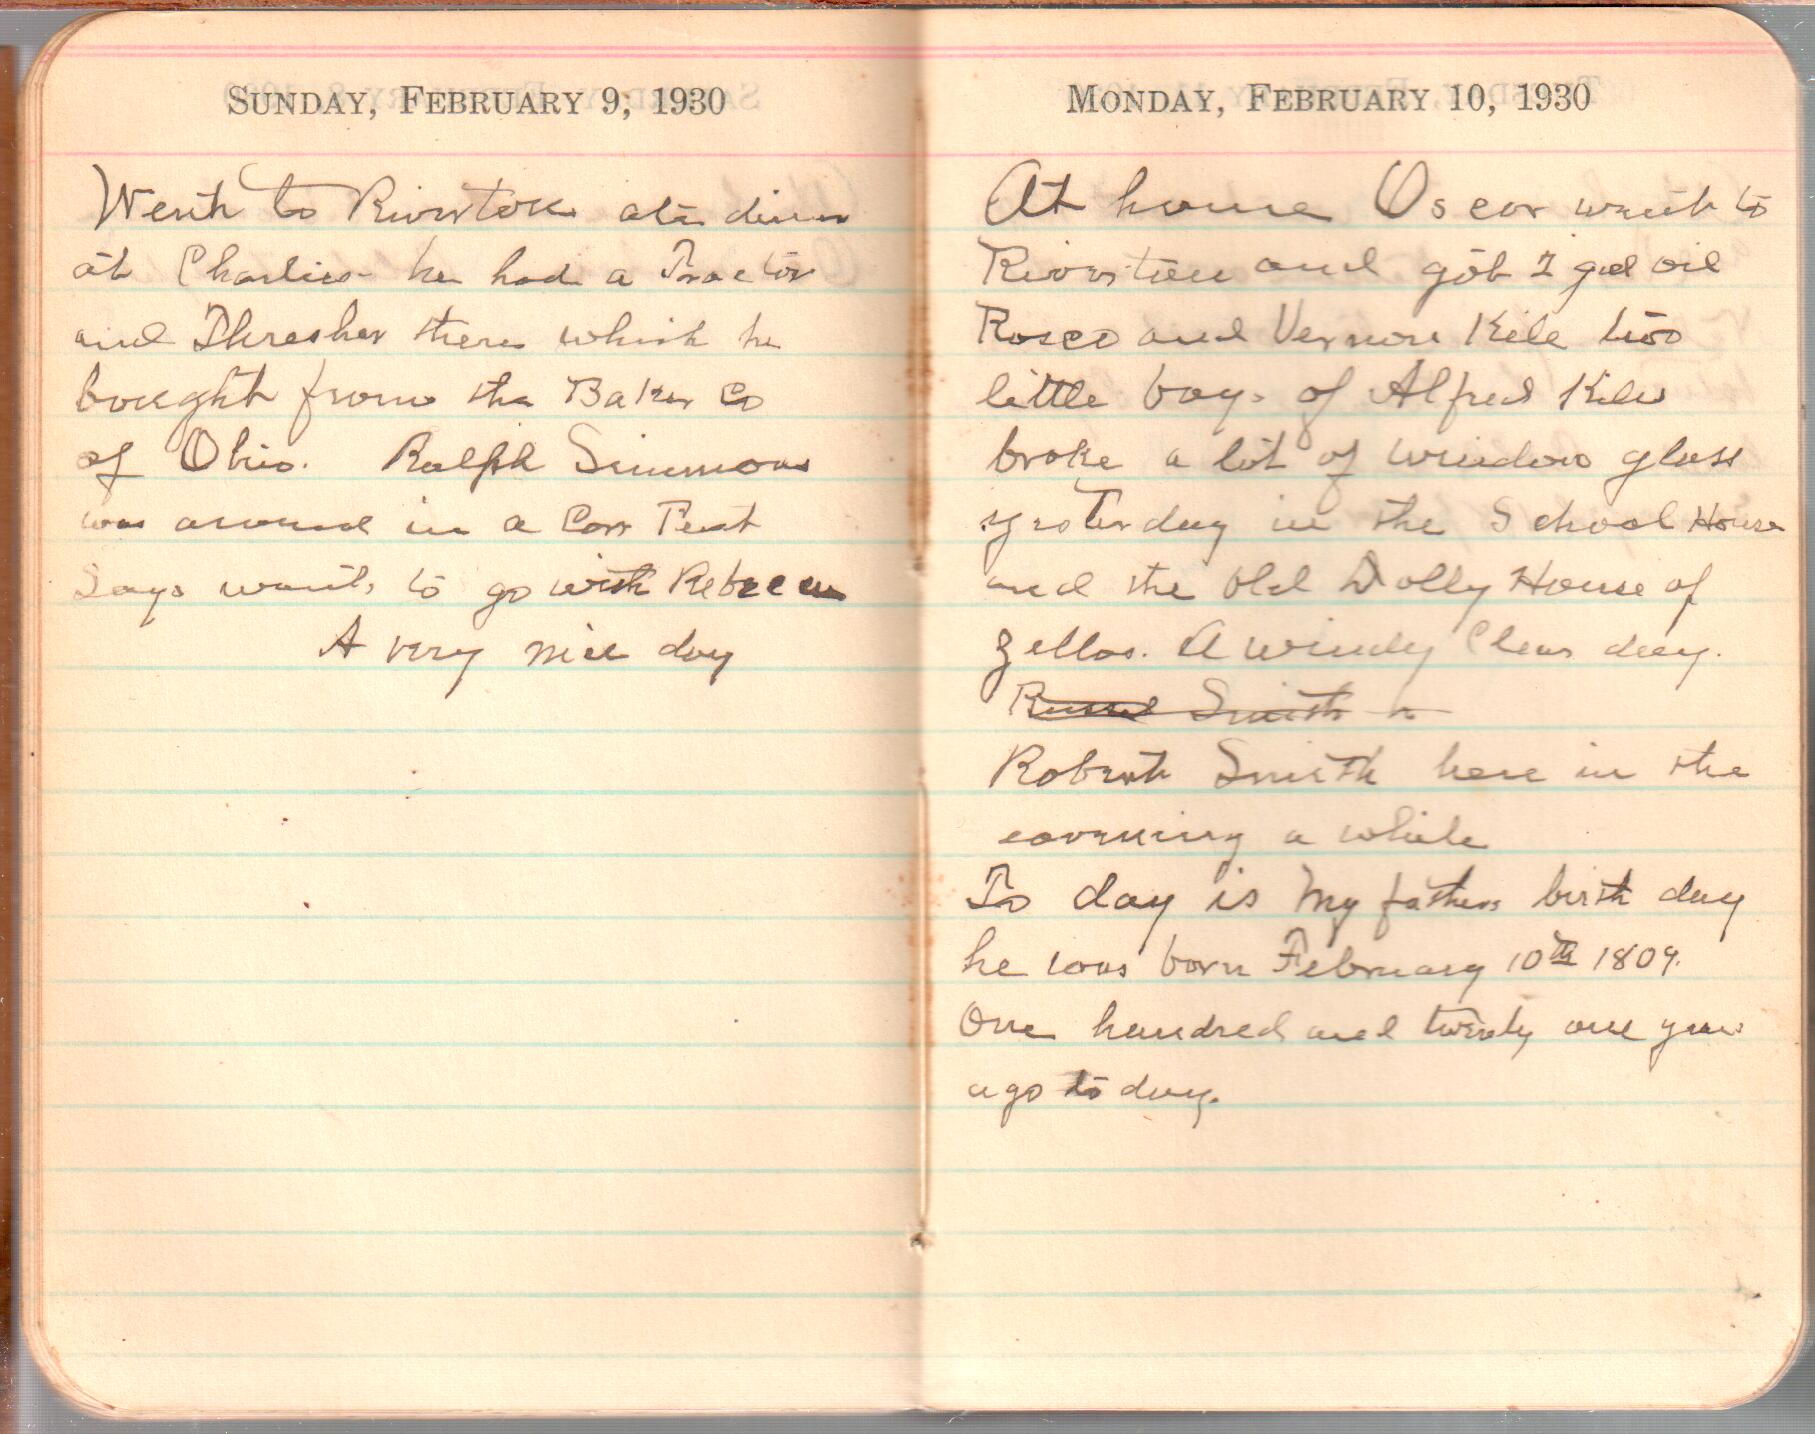 SUNDAY, FEBRUARY 9, 1930
Went to Riverton ate dinner
at Charlies he had a Tractor
and Thresher there which he
bought from the Baker Co
of Ohio. Ralph Simmons
was around in a Carr
Says wants to go with Rebecca
A very nice day
MONDAY, FEBRUARY 10, 1930
At home Oscar went to
Riverton and got 1 gal oil
Rosco and Vernon Kile two
little boys of Alfred Kiles
broke a lot of window glass
yesterday in the School House
and the Old Dolly House of
Zellas. A windy Clear day.
Russel Smith h
Robert Smith here in the
eavening a while
To day is My fathers birth day
he was born February 10th 1809.
One hundred and twenty one years
ago to day.